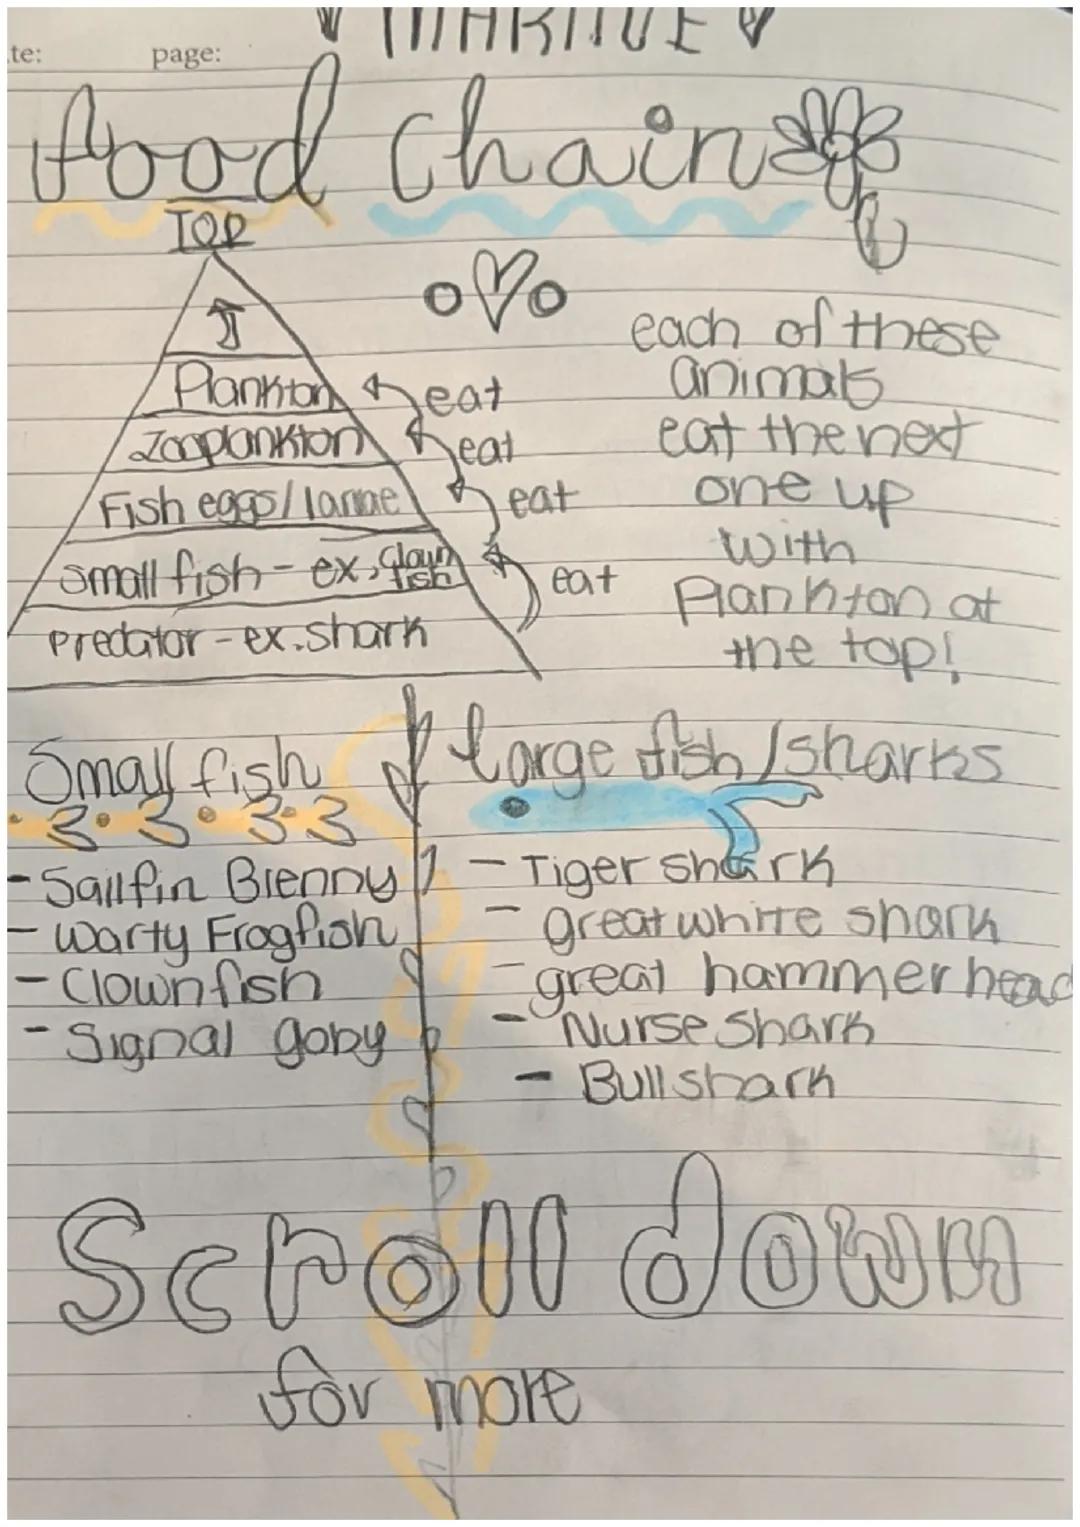 te: page:
MARINE
food Chain
TOP
Plankton
eat
Zooplankton
eat
Fish eggs/larvae
eat
Small fish - ex, Clown fish
eat
Predator - ex. shark
each of these
animals
eat the next
one up
with
Plankton at
the top!
Small fish
- Sailfin Blenny
- Warty Frogfish
- Clownfish
- Signal goby
Large fish/sharks
- Tiger shark
- great white shark
- great hammerhead
- Nurse Shark
- Bull shark
Scroll down
for more